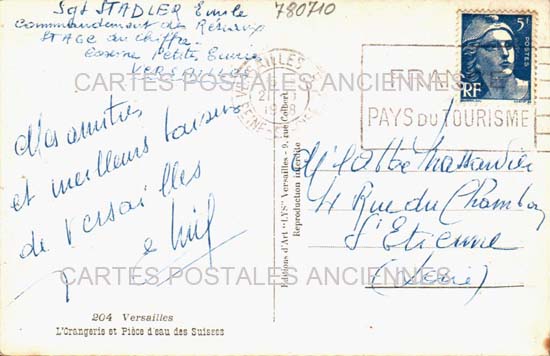 Sgt STADLER Emile
780710
Commandement des Réseaux
STAGE du chiffre
Caserne Petite Ecurie
VERSAILLES
5F
POSTES
RF
VERSAILLES
FRANCE
PAYS DU TOURISME
CARTES POSTALES ANCIENNES
Mes amitiés
et meilleurs baisers
de Versailles
Emil
Editions d'Art "LYS" Versailles - 9, rue Colbert.
Reproduction interdite
4 Rue du Chambon
St Etienne
(Loire)
CARTES POSTALES ANCIENNES
204 Versailles
L'Orangerie et Pièce d'eau des Suisses